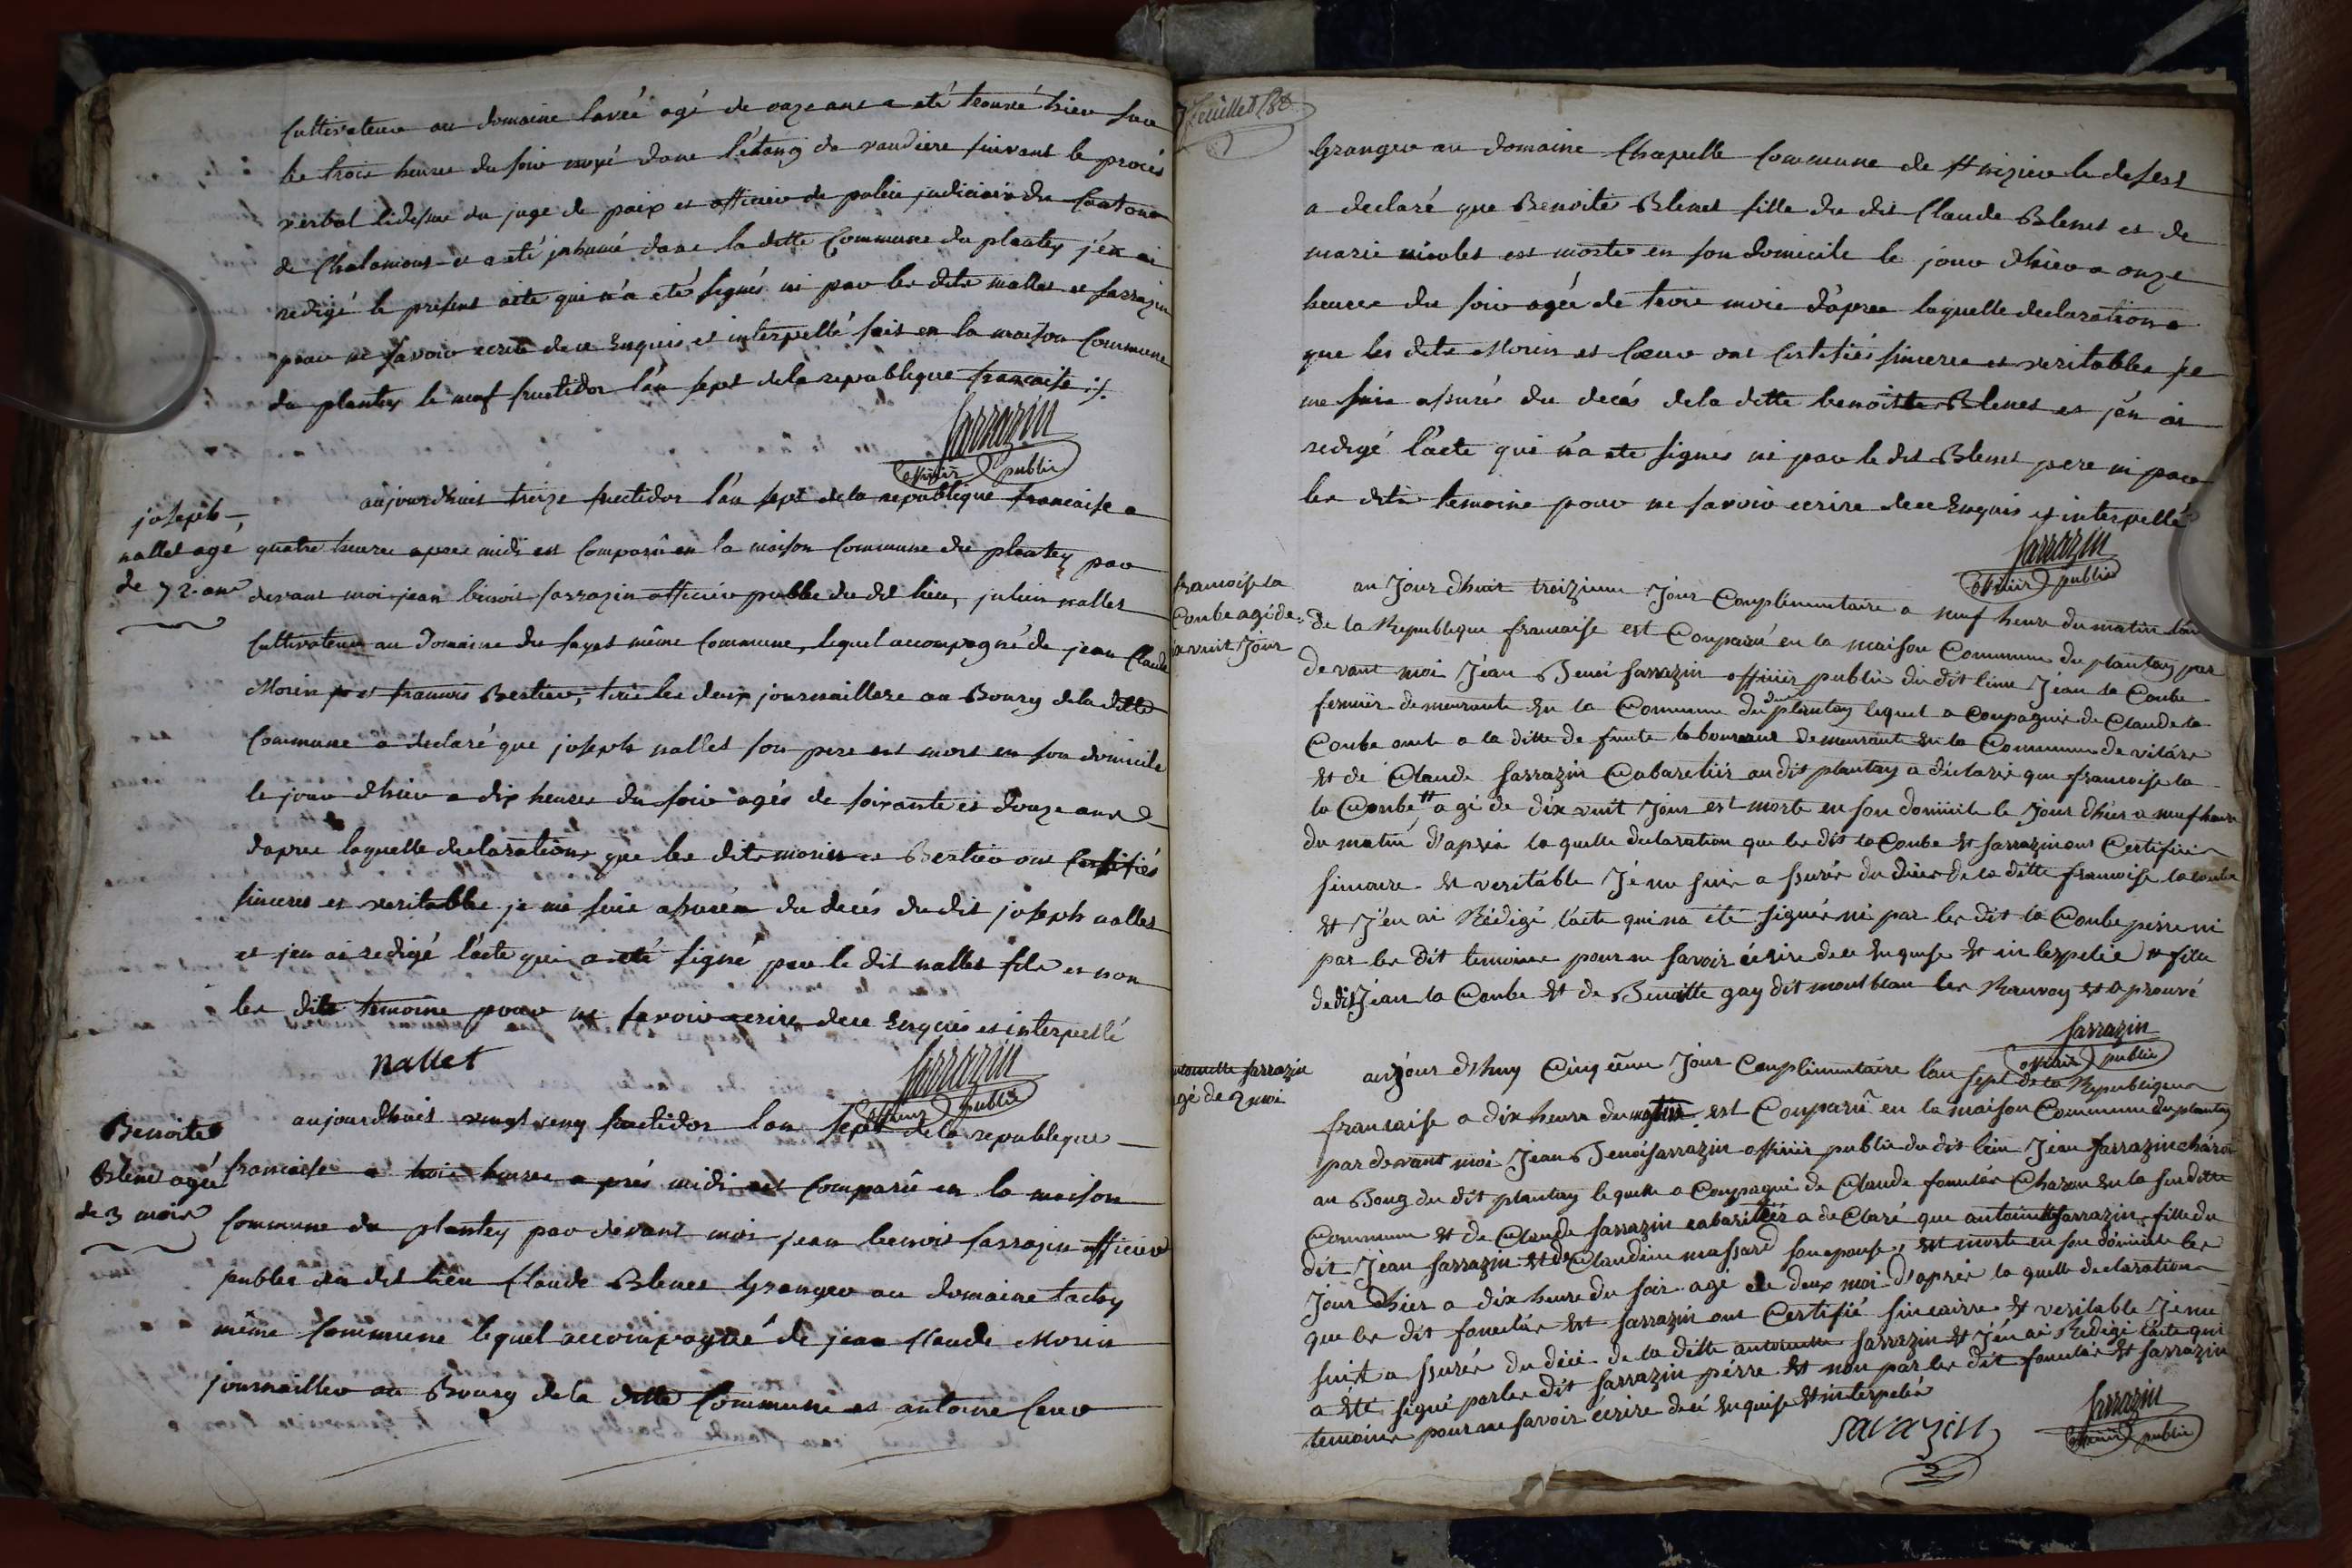 Cultivateur au domaine lavée agé de onze ans a eté trouvé hier sur
les trois heures du soir noyé dans l'étang de vaudiere suivant le procés
verbal du juge de paix et officier de police judiciaire du Canton
de Chalamont et a eté inhumé dans la ditte Commune du plantey j'en ai
redigé le present acte qui n'a eté signés ni par les dits nallet et sarrazin
pour ne savoir ecrire de ce Enquis et interpellé fait en la maison Commune
du plantey le neuf fructidor l'an sept de la republique francaise ./.
Sarrazin
officier public
joseph
nallet agé
de 72 ans
aujourdhuit treize fructidor l'an sept de la republique francaise a
quatre heures apres midi est Comparû en la maison Commune du plantey par
devant moi jean benoit sarrazin officier public du dit lieu, julien nallet
Cultivateur au Domaine du fayet même Commune, lequel accompagné de jean Claude
Morin et francois Bertier, tous les deux journailliers au Bourg de la ditte
Commune a declaré que joseph nallet son pere est mort en son domicile
le jour dhier a dix heures du soir agés de soixante et douze ans
d'apres laquelle declaration que les dits morin et Bertier ont Certifiés
sincere et veritable je me suis assurée du decés du dit joseph nallet
et jen ai redigé l'acte qui a eté signé par le dit nallet fils et non
les dits temoins pour ne savoir ecrire de ce Enquis et interpellé
nallet
Sarrazin
officier public
Benoite
Blenet agée
de 3 mois
aujourdhuit vingt cinq fructidor l'an sept de la republique
francaise a trois heures aprés midi est Comparû en la maison
Commune du plantey par devant moi jean benoit sarrazin officier
public du dit lieu Claude Blenet Granger au domaine tachy
même Commune lequel accompagné de jean Claude Morin
journaillier au Bourg de la ditte Commune et antoine Coeur
feuillet 188
Granger au domaine Chapelle Commune de st nizier le desert
a declaré que Benoite Blenet fille du dit Claude Blenet et de
marie nicolet est morte en son domicile le jour dhier a onze
heures du soir agée de trois mois d'apres laquelle declaration
que les dits Morin et Coeur ont Certifiés sincere et veritable je
me suis assurés du decés de la ditte benoitte Blenet et j'en ai
redigé l'acte qui n'a ete signés ni par le dit Blenet pere ni par
les dits temoins pour ne savoir ecrire de ce Enquis et interpellé
Sarrazin
officier public
francoise la
Coube agé de
dix vuit Jour
au Jour dhuit troizieme Jour Complimentaire a neuf heure du matin l'an
de la Republique francaise est Comparû en la maison Commune du plantay par
devant moi Jean Benoi Sarrazin officiir public du dit lieu Jean la Coube
fermiir demeurante En la Commune du plantay lequel a Compagnie de Claude la
Coube oncle a la ditte de funte laboureur demeurant En la Commune de vilare
Et de Claude Sarrazin Cabaretiir au dit plantay a declaré que francoise la
la Coube # a gé de dix vuit Jour est morte en son domicile le Jour dhier a neuf heure
du matin d'aprés la quelle declaration que les dit la Coube Et Sarrazin ont Certifiir
sincaire Et veritable Je me suis a ssurée du décés de la ditte francoise la Coube
Et J'en ai Rédigé l'acte qui na été signér ni par les dit la Coube pérre ni
par les dit temoins pour ne savoir écrire de ce Enquise Et interpelée # fille
du dit Jean la Coube Et de Benoitte gay dit montblan les Ranvoy Et aprouvé
Sarrazin
officiir public
antoinette Sarrazin
agé de 2 moi
aujour d'huy Cinq ème Jour Complimentaire l'an sept de la Republique
francaise a dix heure du matin est Comparû en la maison Commune du plantay
par devant moi Jean Benoi Sarrazin officiir public du dit lieu Jean Sarrazin charon
au Boug du dit plantay lequelle a Compagné de Claude Charon En la susditte
Commune Et de Claude Sarrazin cabaritiér a declaré que antoinette Sarrazin fille du
dit Jean Sarrazin Et de Claudine massard son epouse, Est morte en son domicile les
Jour D'hier a dix heure du soir agé de deux moi d'aprés la quelle declaration
que les dit Et Sarrazin ont Certifié sincairre Et veritable Je me
suit a ssurée du décé de la ditte antoinette Sarrazin Et J'én ai Redigé l'acte qui
a été signé par les dit Sarrazin pérre Et non par les dit Et Sarrazin
temoins pour ne savoir écrire de cé Enquise Et interpelée
sarazin
Sarrazin
officiir public